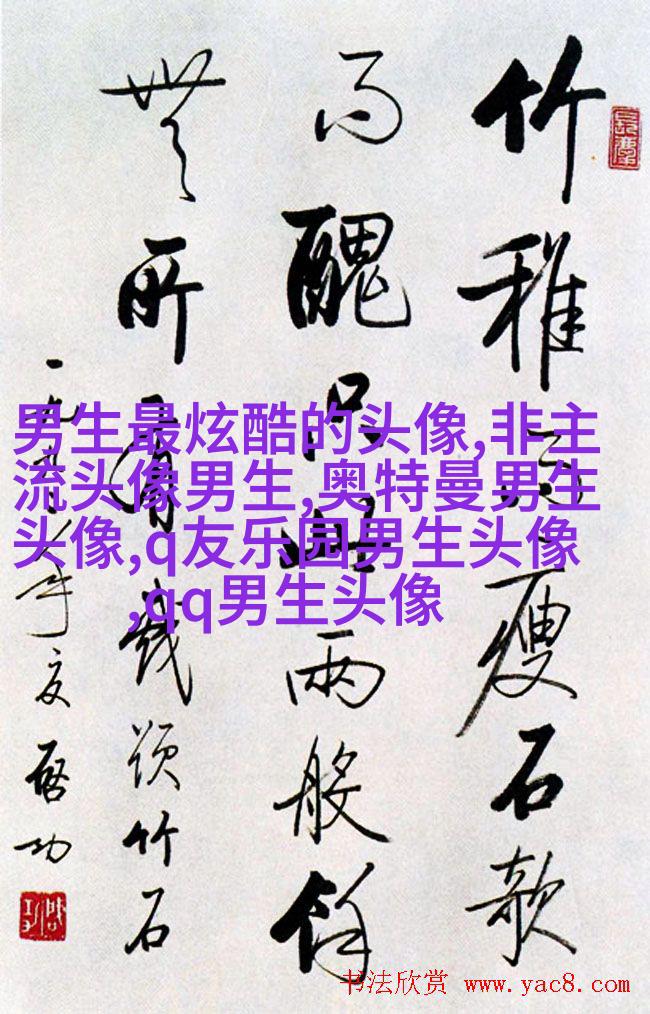 竹稚而瘦石欹
而醜只此兩般餘
無所有題竹石
一九年夏啟功
男生最炫酷的头像,非主
流头像男生,奥特曼男生
头像,q友乐园男生头像
,qq男生头像
书法欣赏 www.yac8.com